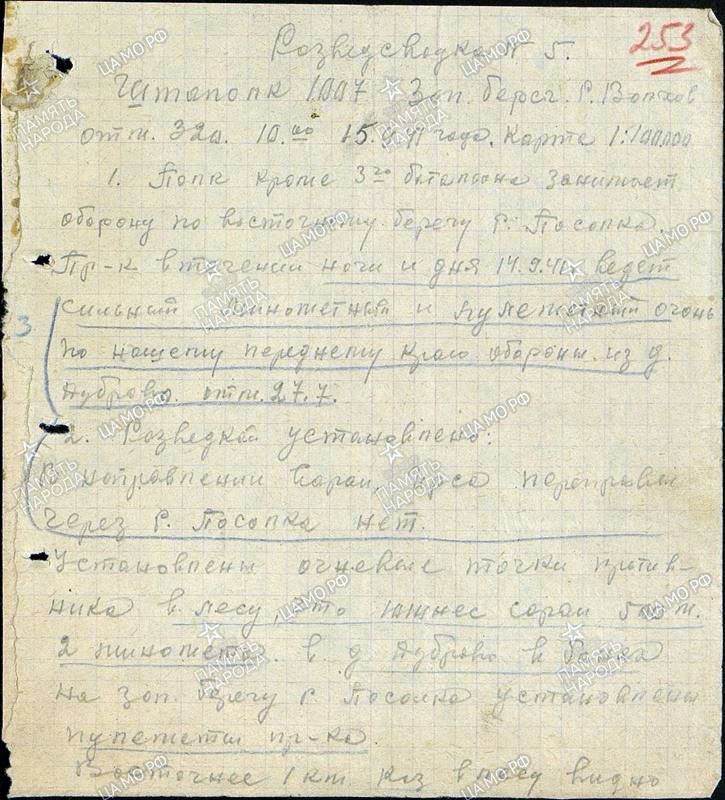 253
Разведсводка № 5.
Штаполк 1007 Зап. берег. р. Волхов
отм. 32,0. 10.00 15.9.41 года. Карта 1:100000
1. Полк кроме 3го батальона занимает
оборону по восточному берегу р. Посолка.
Пр-к в течении ночи и дня 14.9.41 ведет
сильный минометный и пулеметный огонь
по нашему переднему краю обороны из д.
Дуброво. отм. 27.7.
3
2. Разведкой установлено:
В направлении Сараи, переправы
через р. Посолка нет.
Установлены огневые точки против-
ника в лесу, что южнее сараи 500 м.
2 миномета. в д Дуброво в
на зап. берегу р. Посолка установлены
пулеметы пр-ка.
Восточнее 1 км. в лесу видно
ЦАМО.РФ
ПАМЯТЬ НАРОДА